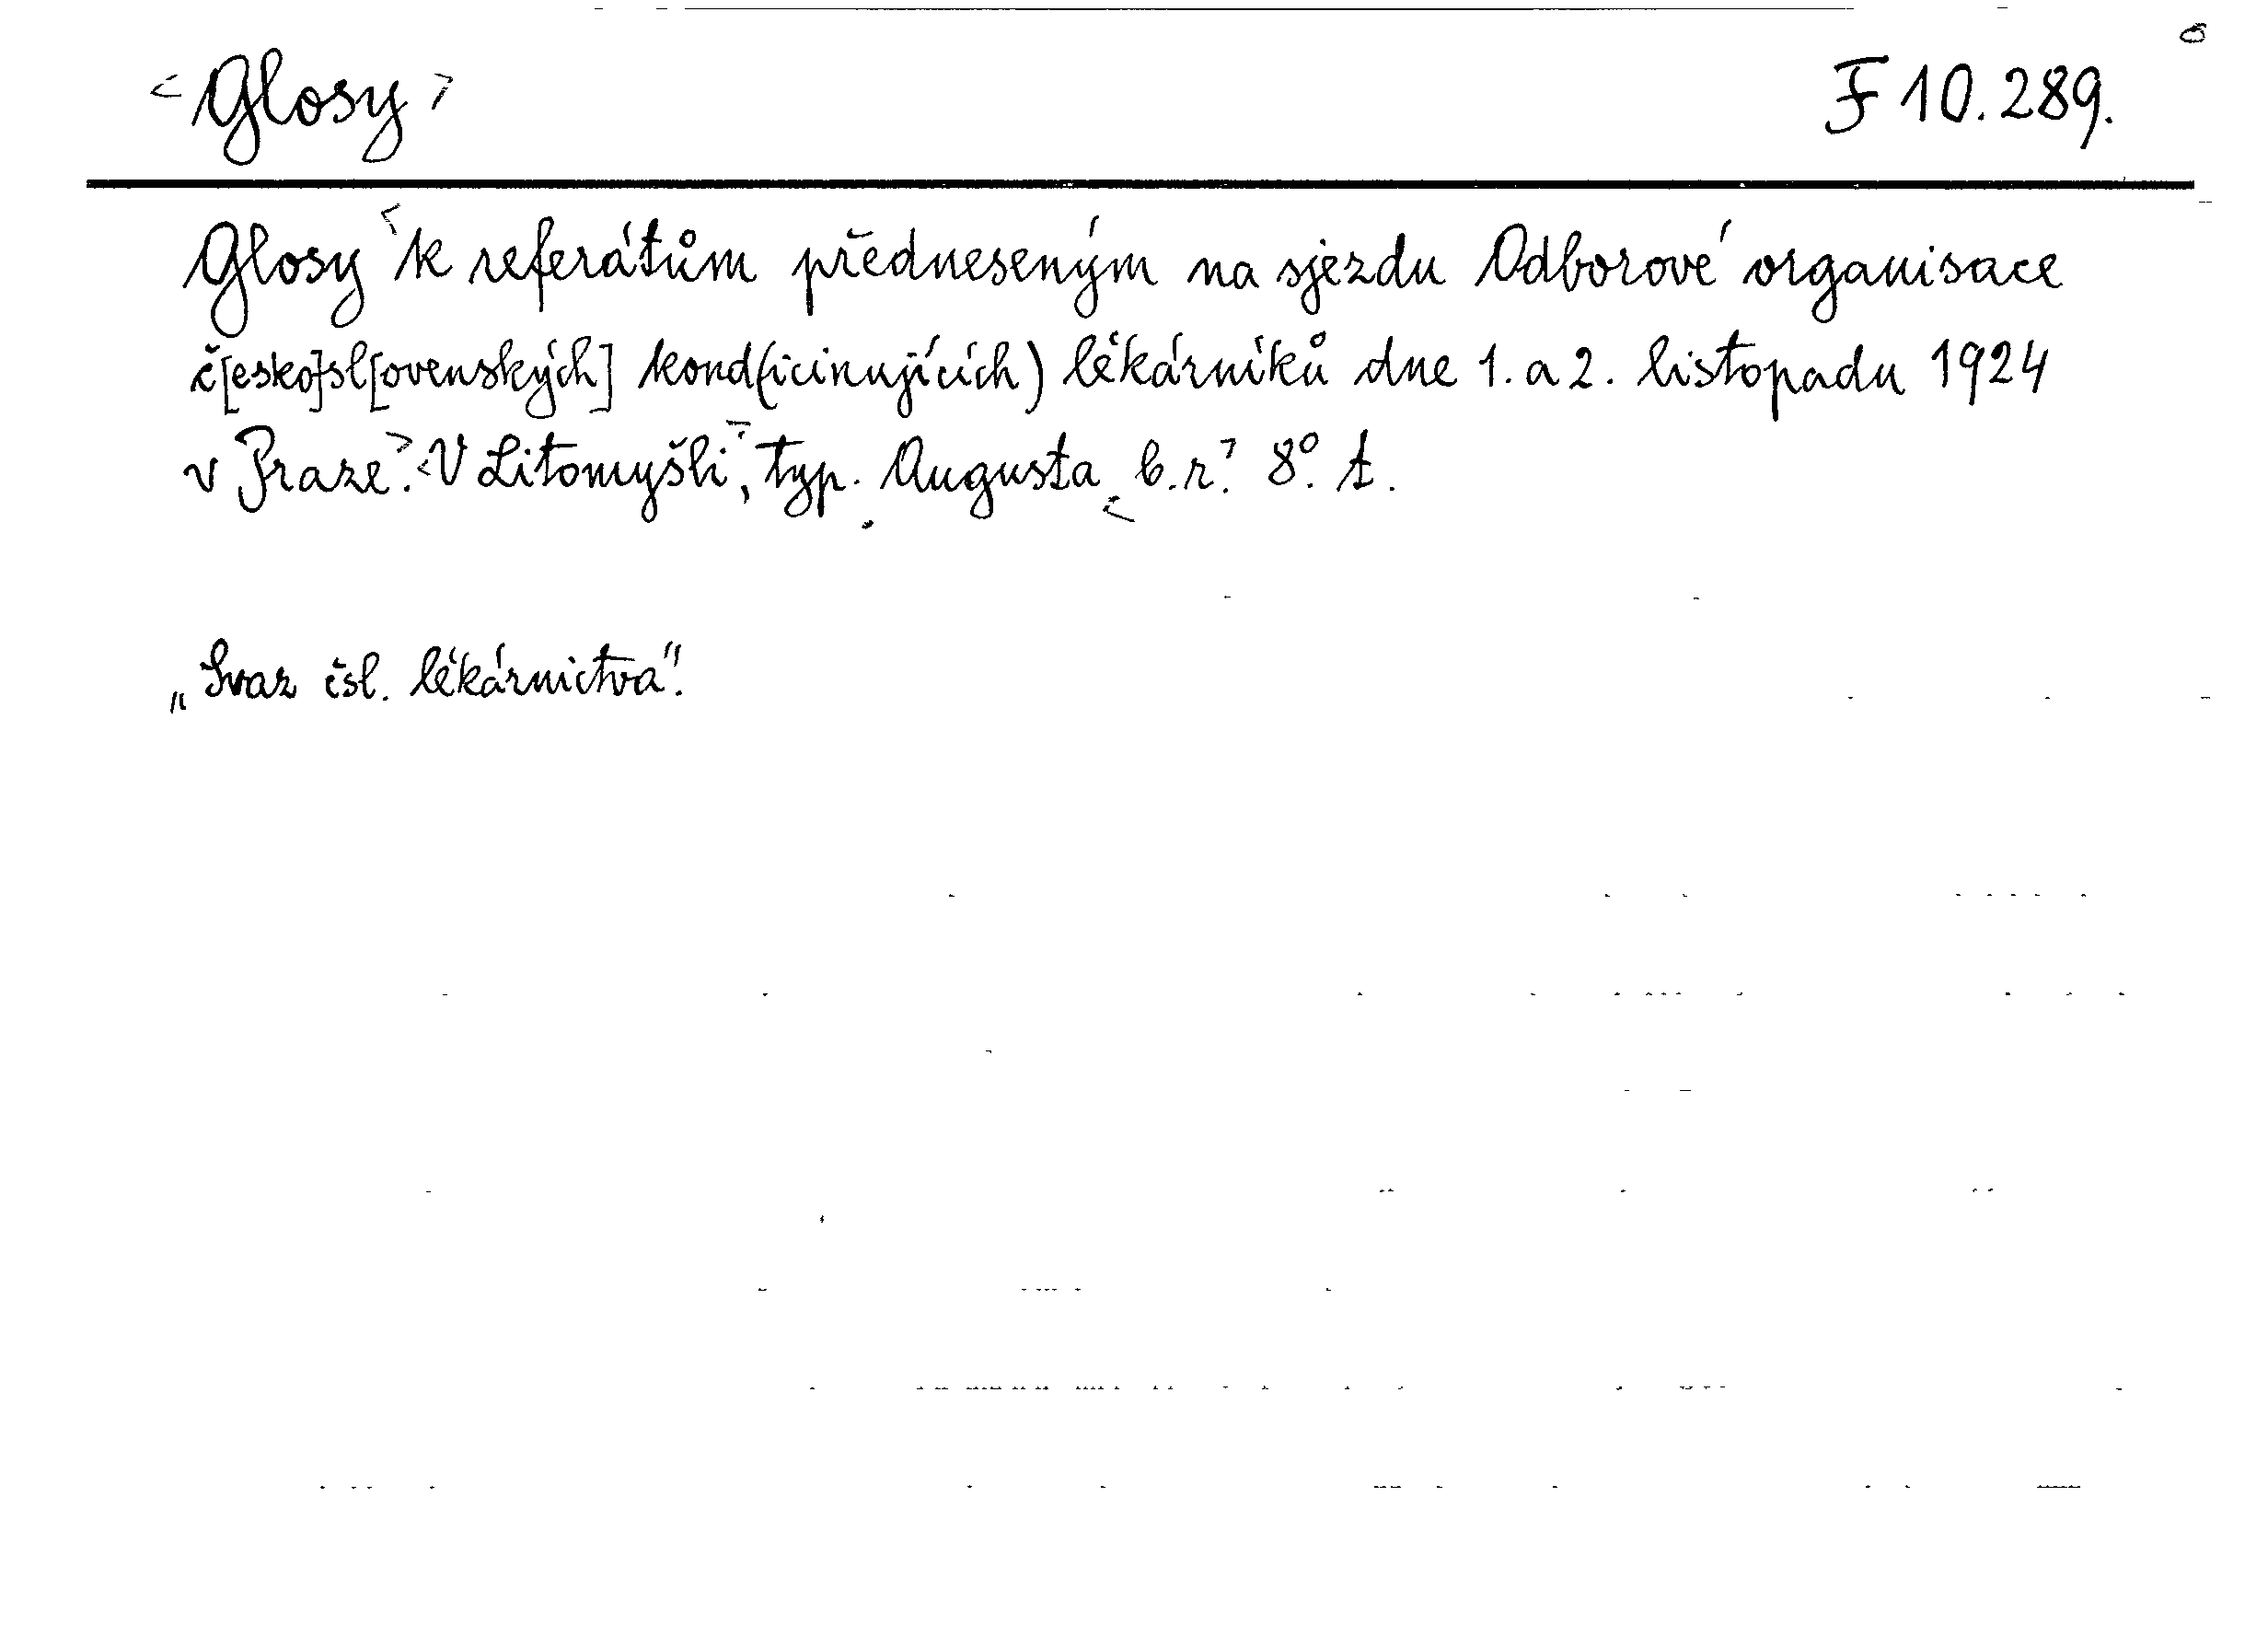 <Glosy> F 10.289.
Glosy <k referátům předneseným na sjezdu Odborové organisace
č[esko]sl[ovenských] kond(icinujících) lékárníků dne 1. a 2. listopadu 1924
v Praze>. <V Litomyšli>, typ. Augusta <b.r.> 8°. A.
„Svaz čsl. lékárnictva".